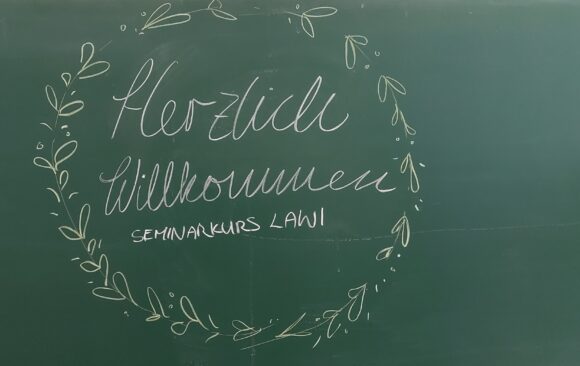 Herzlich
Willkommen
SEMINARKURS LAWI